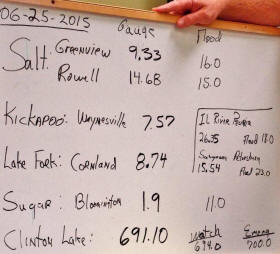 06-25-2015
Gauge Flood
Salt: Greenview 9.33 16.0
Rowell 14.68 15.0
Kickapoo: Waynesville 7.57
IL River Peoria
26.35 Flood 18.0
Sangamon Petersburg
15.54 Flood 23.0
Lake Fork: Cornland 8.74
Sugar: Bloomington 1.9 11.0
Clinton Lake: 691.10
Watch Emerg
694.0 700.0